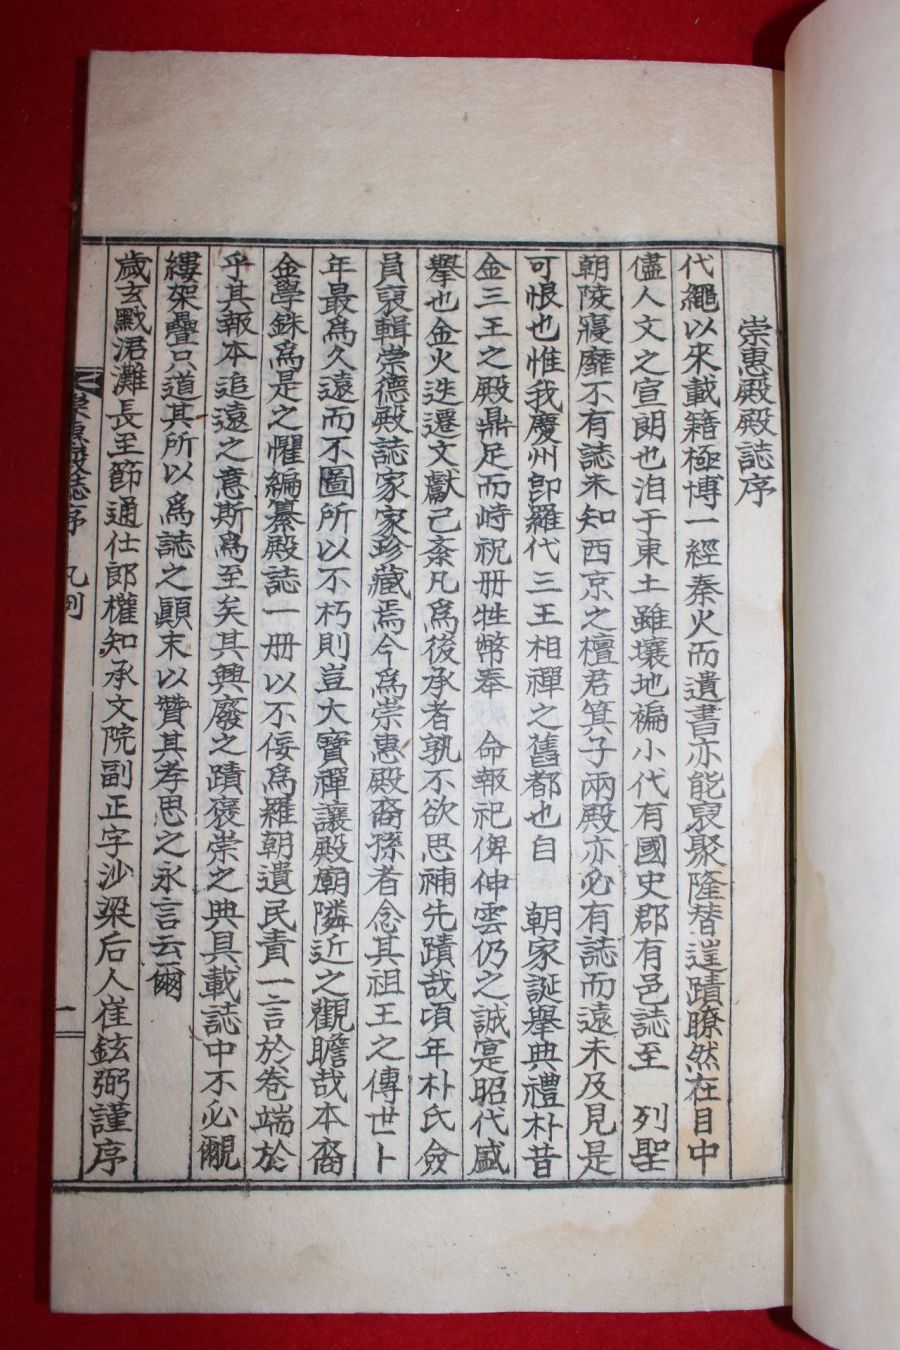 崇惠殿殿誌序
代繩以來載籍極博一經秦火而遺書亦能裒聚隆替遑蹟瞭然在目中
儘人文之宣朗也洎于東土雖壤地褊小代有國史郡有邑誌至 列聖
朝陵寢靡不有誌未知西京之檀君箕子兩殿亦必有誌而遠未及見是
可恨也惟我慶州卽羅代三王相禪之舊都也自 朝家誕擧典禮朴昔
金三王之殿鼎足而峙祝册牲幣奉 命報祀俾伸雲仍之誠寔昭代盛
擧也金火迭遷文獻已紊凡爲後承者孰不欲思補先蹟哉頃年朴氏僉
員裒輯崇德殿誌家家珍藏焉今爲崇惠殿裔孫者念其祖王之傳世卜
年最爲久遠而不圖所以不朽則豈大寶禪讓殿廟隣近之觀瞻哉本裔
金學銖爲是之懼編纂殿誌一册以不佞爲羅朝遺民責一言於卷端於
乎其報本追遠之意斯爲至矣其興廢之蹟褒崇之典具載誌中不必覼
縷架疊只道其所以爲誌之顚末以贊其孝思之永言云爾
歲玄黓涒灘長至節通仕郞權知承文院副正字沙梁后人崔鉉弼謹序
崇惠殿誌序 凡例 一